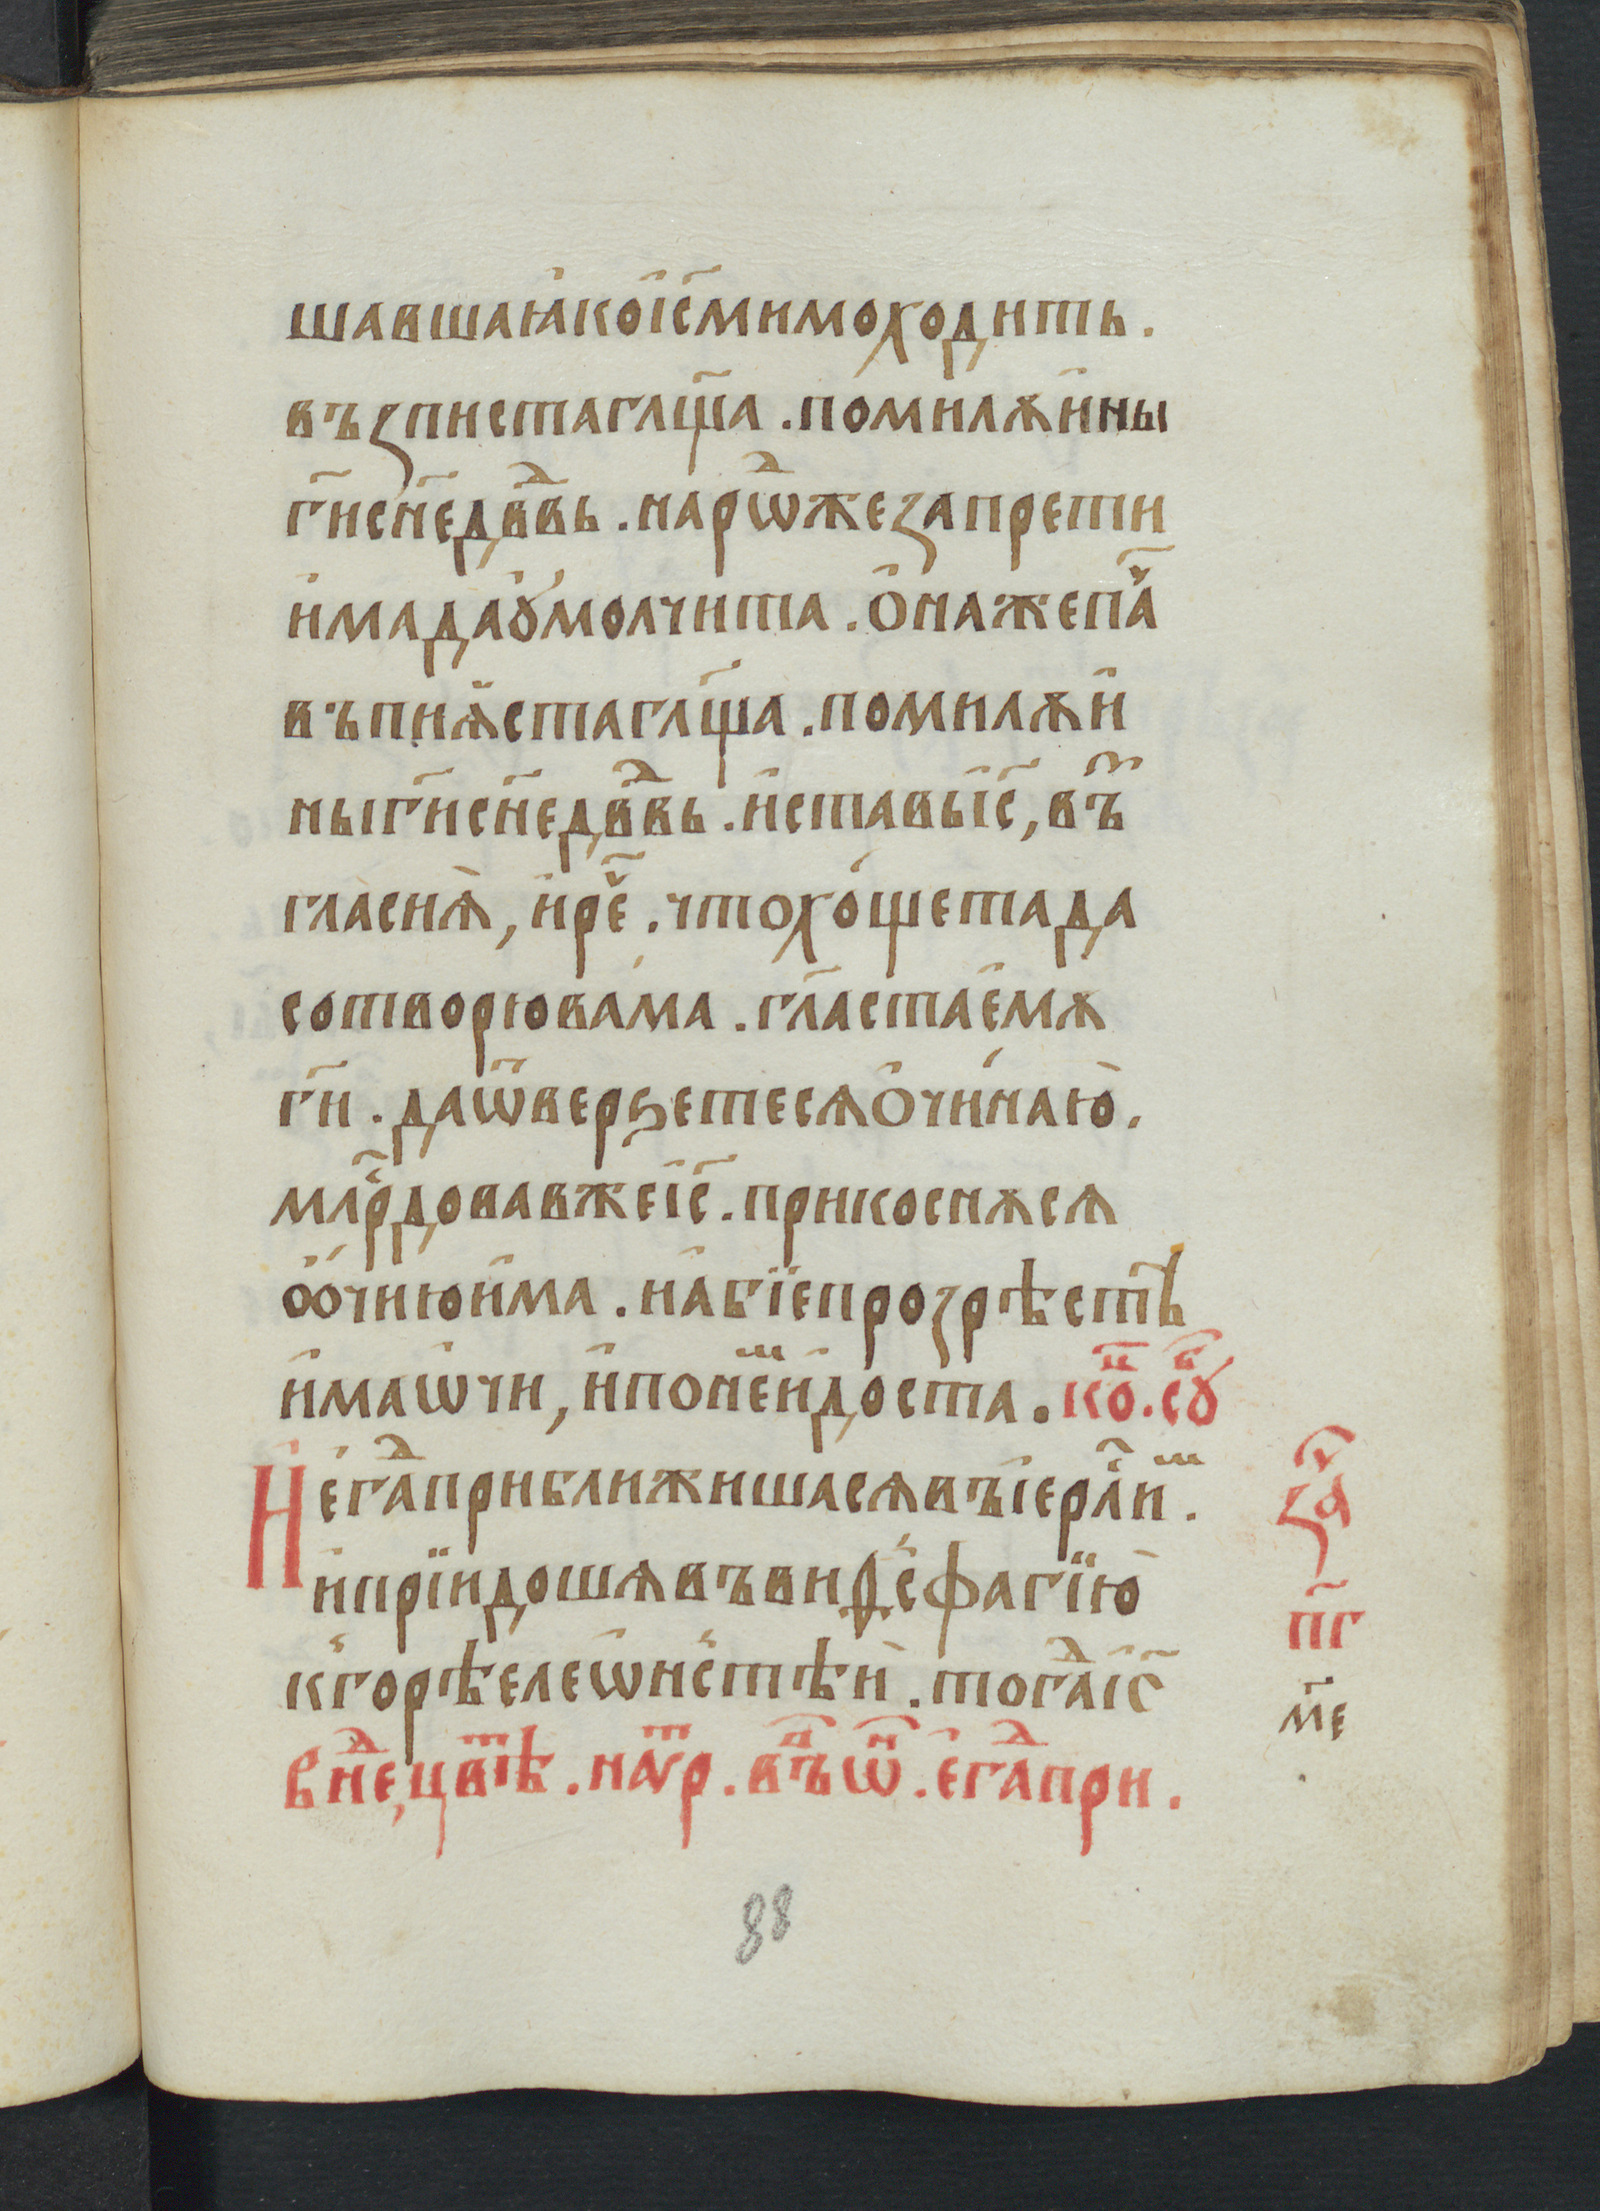 шавшаꙗ҆коі҆с҃мимоходить.
въꙁпистагл҃ща.помилѫ҆и҆ны
гн҃исн҃едв҃двь.нарѡⷣжезапрети
и҆мадаꙋ҆́молчита.ѻ҆нажепа҃ч
въпиѧ҆стагл҃ща.помилѫи҆
ныгн҃исн҃едв҃двь.и҆ставьі҆с҃,въⁿ
гласиѧ҆,и҆реч҃.чтохо́щетада
сотворюва́ма.гл҃астае҆мѫ
гн҃и.даѿверꙃетесѧѻ҆чи́наю̀.
млⷭ҇рдовавжеі҆с҃.прикоснѫсѧ
ѻ҆ѻ҆́чиюи҆ма.и҆а҆бїепроꙁрѣстѣ
и҆маѡ҆чи,и҆поне́мⷨи҆доста.коⷰ҇.сꙋⷠ҇
И҆е҆гдⷣаприближишасѧвъі҆ерⷭ҇ли́мⷨ.
и҆прїидошѧвъвиѳсфагїю̀
кгорѣелеѡ҆нстѣи.тогдⷣаі҆с҃
внеⷣ,цвѣⷮ.наꙋⷮр.въпⷣѡⷩ.е҆гдⷣапри.
заⷱ҇
п҃г
м҃е
88